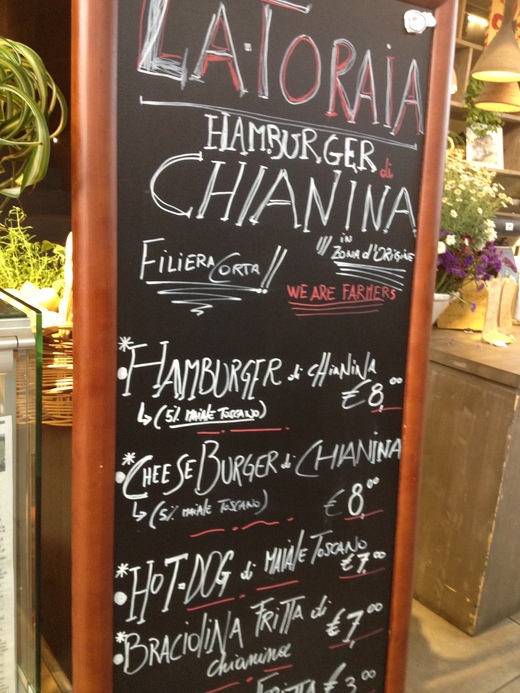 LA·TORAIA
HAMBURGER di
CHIANINA
FILIERA CORTA!!
!!! IN ZONA d'ORIGINE
WE ARE FARMERS
* HAMBURGER di CHIANINA
€ 8,00
↳ (5% MAIALE TOSCANO)
* CHEESE BURGER di CHIANINA
↳ (5% MAIALE TOSCANO)
€ 8,00
* HOT-DOG di MAIALE TOSCANO
€ 7,00
* BRACIOLINA FRITTA di
chianina
€ 7,00
FRITTA € 3,00